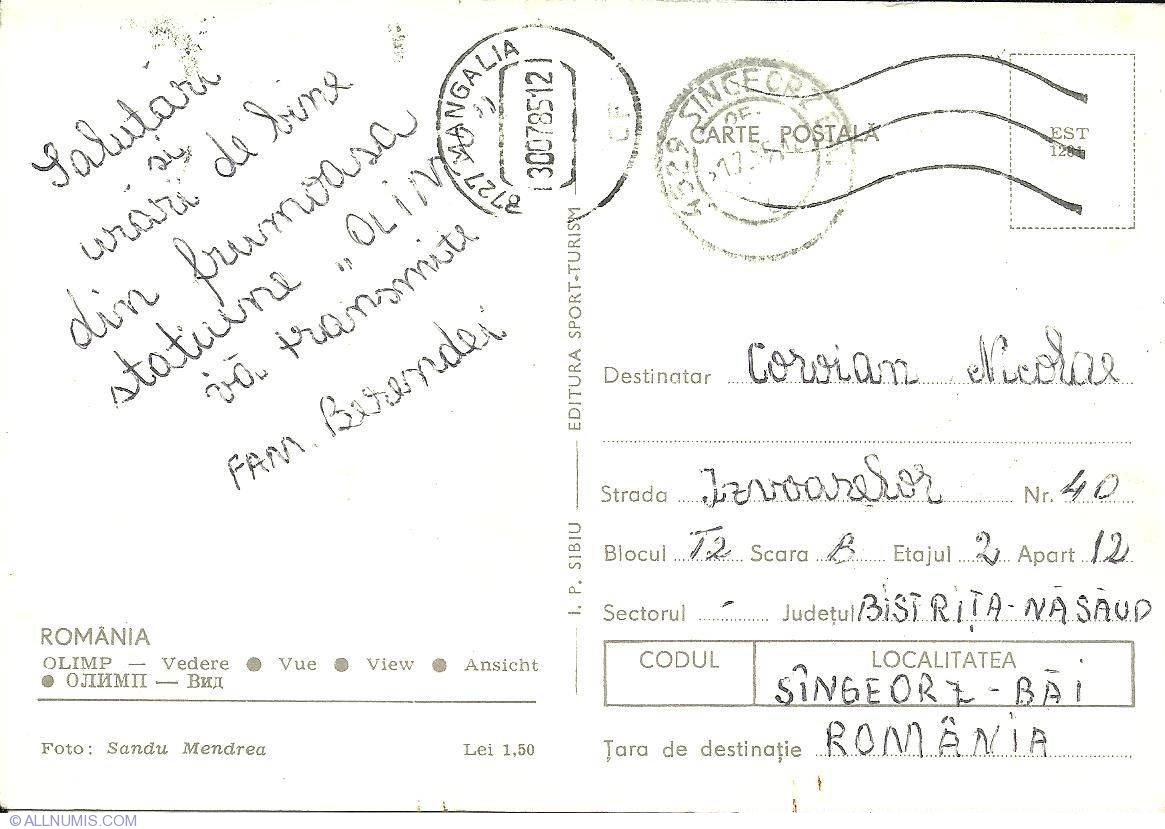 Salutări
și
urări de bine
din frumoasa
stațiune „OLIMP"
vă transmite
FAM. Berendei
8727 MANGALIA
30078512
CF
4529 SÎNGEORZ
CARTE POȘTALĂ
EST
1281
I. P. SIBIU — EDITURA SPORT-TURISM
Destinatar Coroian Nicolae
Strada Izvoarelor Nr. 40
Blocul T2 Scara B Etajul 2 Apart 12
Sectorul - Județul BISTRIȚA-NĂSĂUD
CODUL LOCALITATEA
SÎNGEORZ-BĂI
Țara de destinație ROMÂNIA
ROMÂNIA
OLIMP — Vedere ● Vue ● View ● Ansicht
● ОЛИМП — Вид
Foto: Sandu Mendrea Lei 1,50
© ALLNUMIS.COM